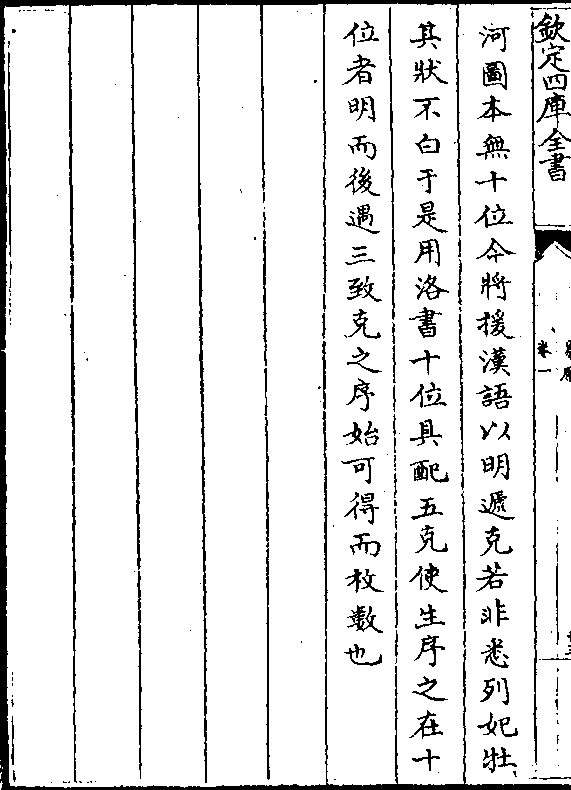 欽定四庫全書
卷一
河圖本無十位今將援漢語以明遞克若非悉列妃牡
其狀不白于是用洛書十位具配五克使生序之在十
位者明而後遇三致克之序始可得而枚數也